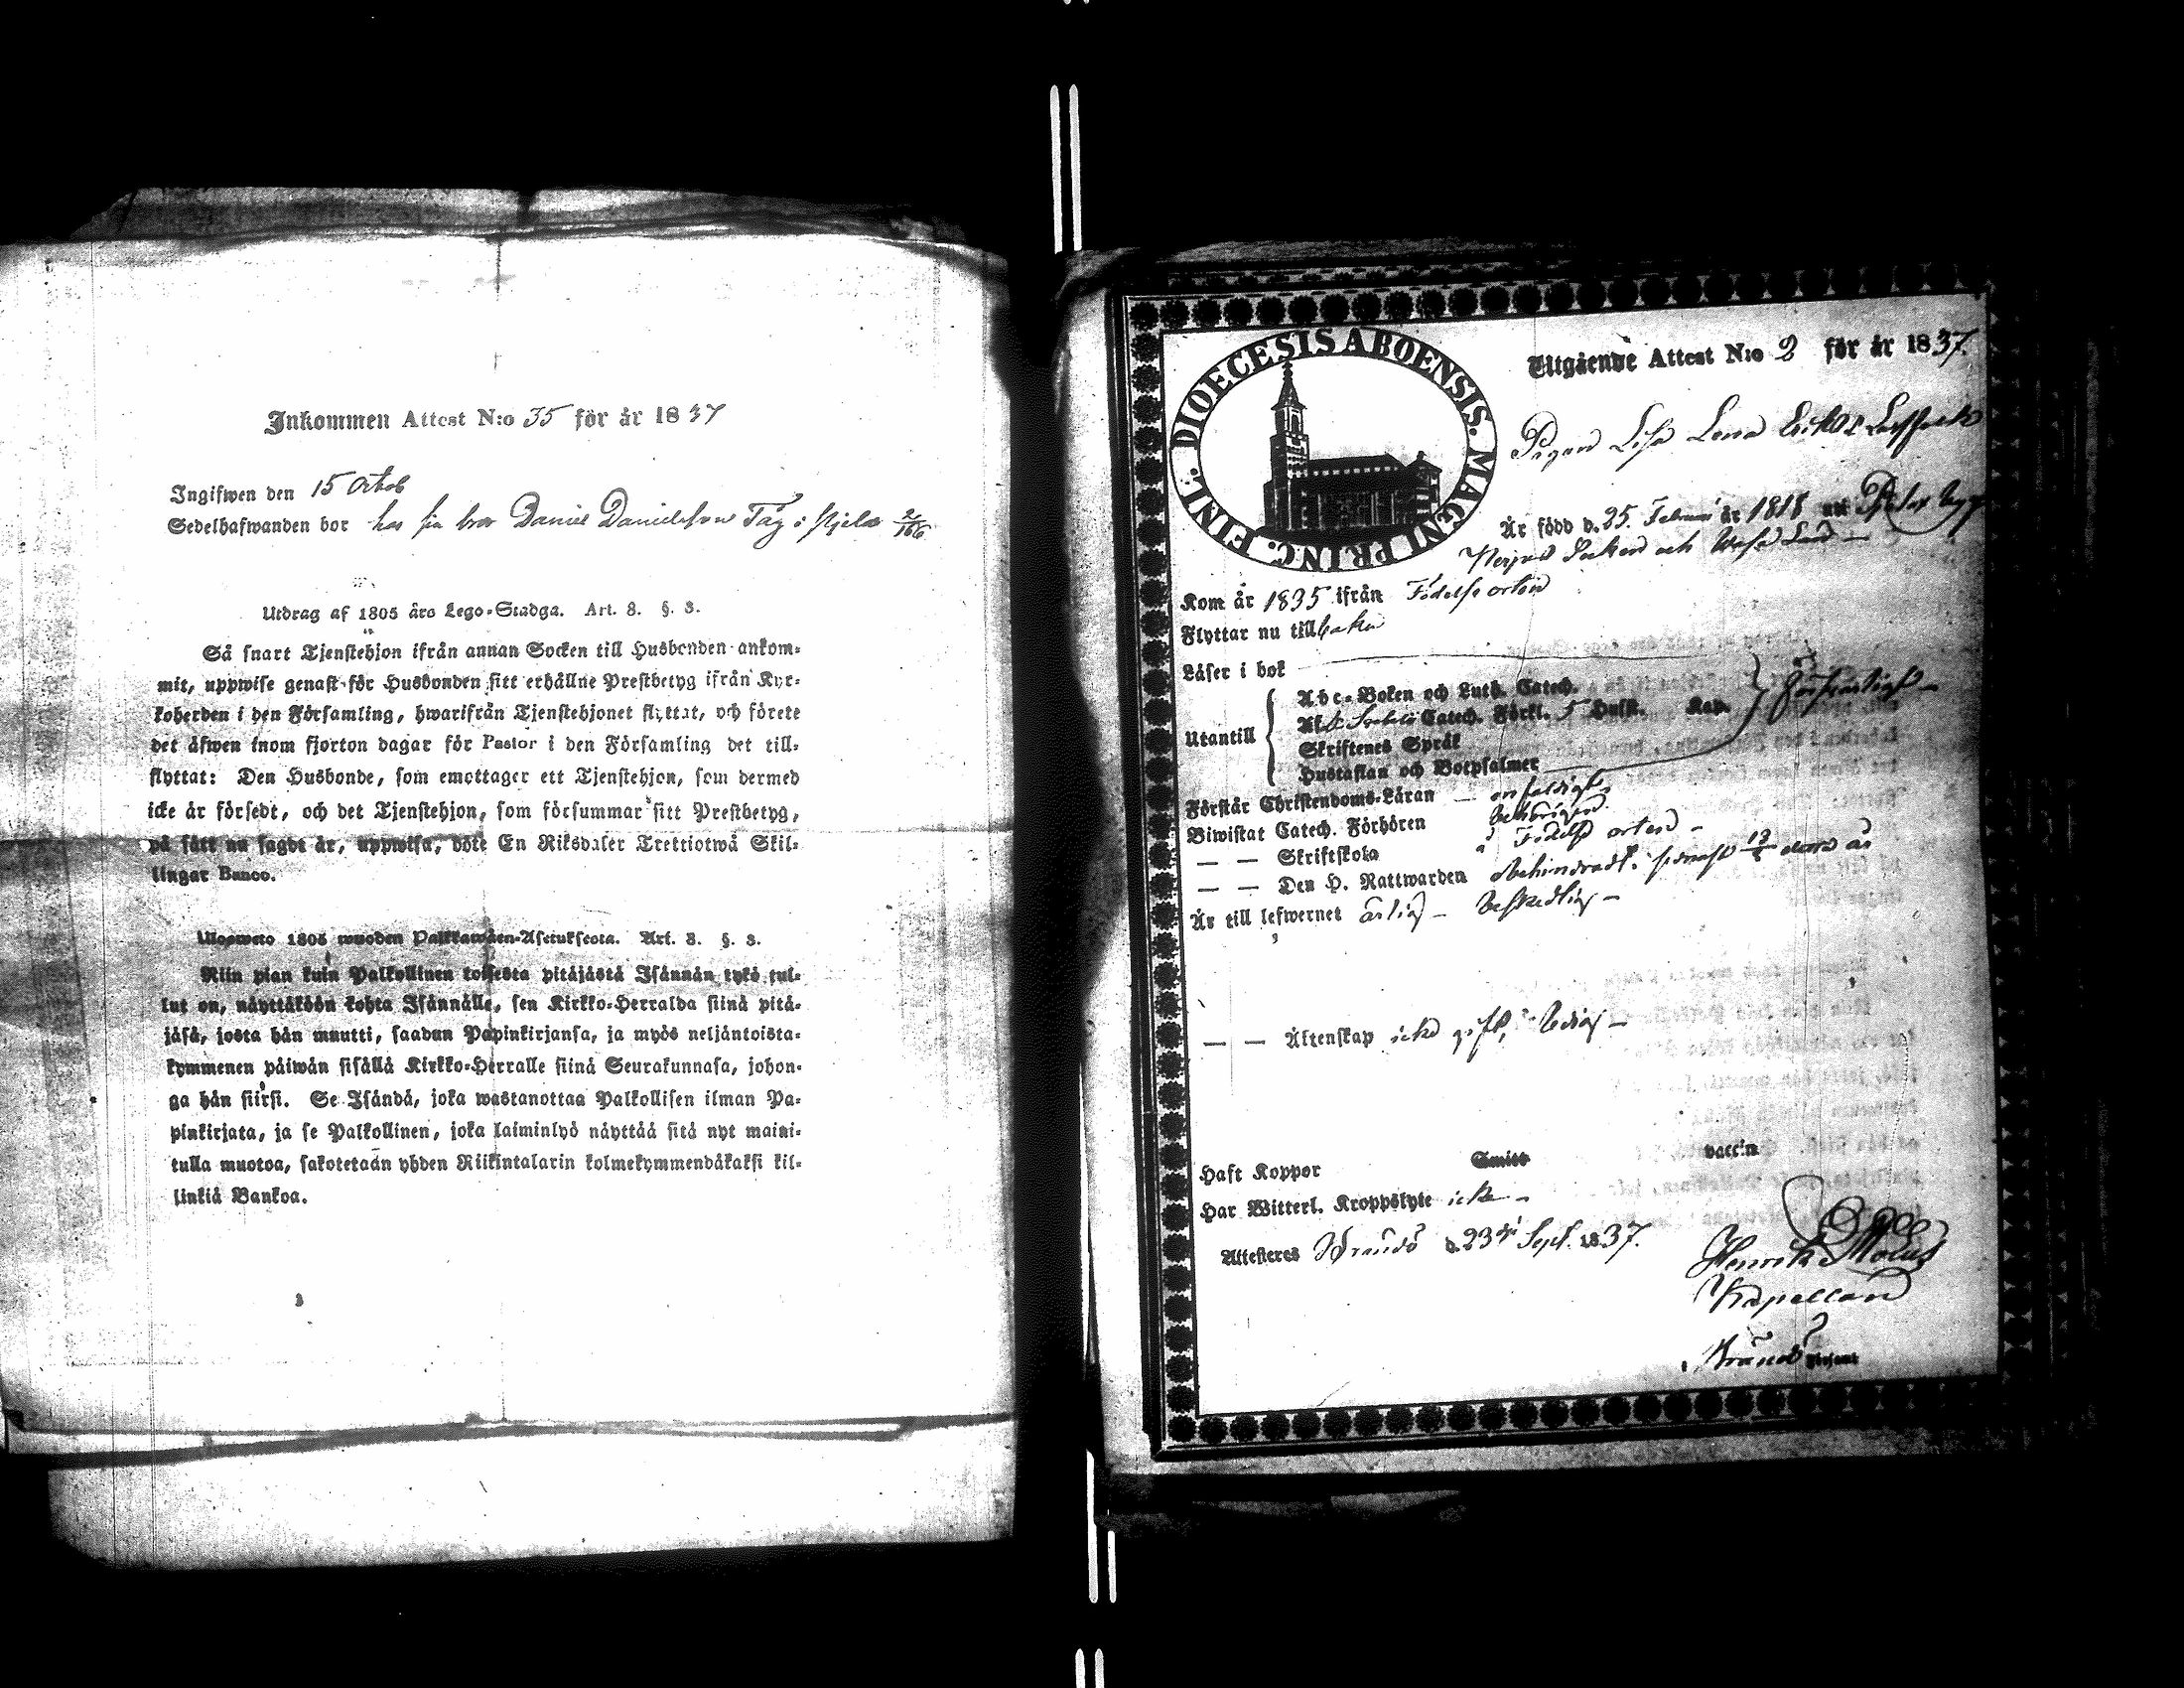 Inkommen Attest N:o 35 för år 1837
Ingifwen den 15 Octob
Sedelhafwanden bor hos sin bror Daniel Danielsson Tåg i 2/166
Utdrag af 1805 års Lego-Stadga. Art. 8. §. 3.
Så snart Tjenstehjon ifrån annan Socken till Husbonden ankom-
mit, uppwise genast för Husbonden sitt erhållne Prestbetyg ifrån Kyr-
koherden i den Församling, hwarifrån Tjenstehjonet flyttat, och förete
det äfwen inom fjorton dagar för Pastor i den Församling det till-
flyttat: Den Husbonde, som emottager ett Tjenstehjon, som dermed
icke är försedt, och det Tjenstehjon, som försummar sitt Prestbetyg,
på sätt nu sagdt är, uppwisa, böte En Riksdaler Trettiotwå Skil-
lingar Banco.
Ulosweto 1805 wuoden Palkkawäen-Asetuksesta. Art. 8. §. 3.
Niin pian kuin Palkollinen toisesta pitäjästä Isännän tykö tul-
lut on, näyttäköön kohta Isännälle, sen Kirkko-Herralda siinä pitä-
jäsä, josta hän muutti, saadun Papinkirjansa, ja myös neljäntoista-
kymmenen päiwän sisällä Kirkko-Herralle siinä Seurakunnasa, johon-
ga hän siirsi. Se Isändä, joka wastanottaa Palkollisen ilman Pa-
pinkirjata, ja se Palkollinen, joka laiminlyö näyttää sitä nyt maini-
tulla muotoa, sakotetaan yhden Riikintalarin kolmekymmendäkaksi kil-
linkiä Bankoa.
DIOECESIS ABOENSIS. MAGNI PRINC. FINL.
Utgående Attest N:o 2 för år 1837.
Pigan Lisa Lena Eriks
Är född d. 25. Februari år 1818 uti
Socken och Wasa Län
Kom år 1835 ifrån Födelse orten
Flyttar nu tillbaka
Läser i bok
Utantill
Abc-Boken och Luth. Catech.
Catech. Förkl. 5 Hufst. Kap.
Skriftenes Språk
Hustaflan och Botpsalmer
försvarligt
Förstår Christendoms-Läran enfaldigt
Biwistat Catech. Förhören behörigen
— — Skriftskola i Födelse orten
— — Den H. Nattwarden obehindradt: senast 13/5 detta år
Är till lefwernet ärlig - beskedlig -
— — Äktenskap icke gift, ledig -
Haft Koppor Smitt vaccin
Har Witterl. Kroppslyte icke -
Attesteres Brändö d. 23 Sept. 1837.
Henrik
Kapellan
Brändö